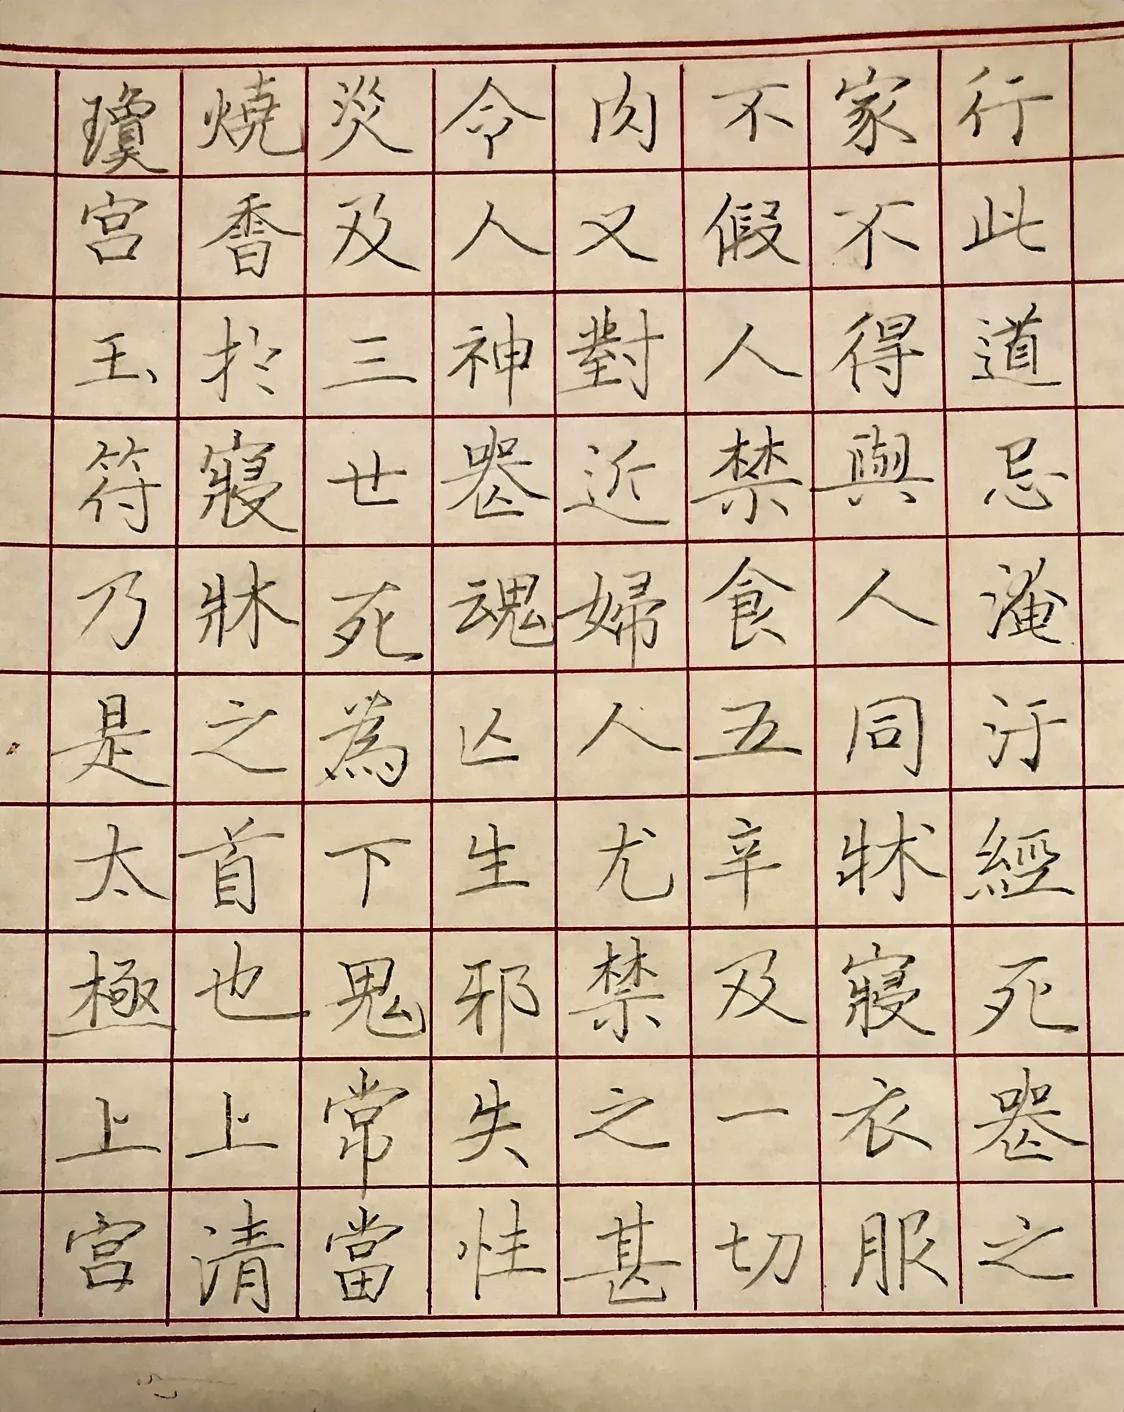 行此道忌淹汙經死喪之
家不得與人同牀寢衣服
不假人禁食五辛及一切
肉又對近婦人尤禁之甚
令人神喪魂亡生邪失性
災及三世死為下鬼常當
燒香於寢牀之首也上清
瓊宮玉符乃是太極上宮